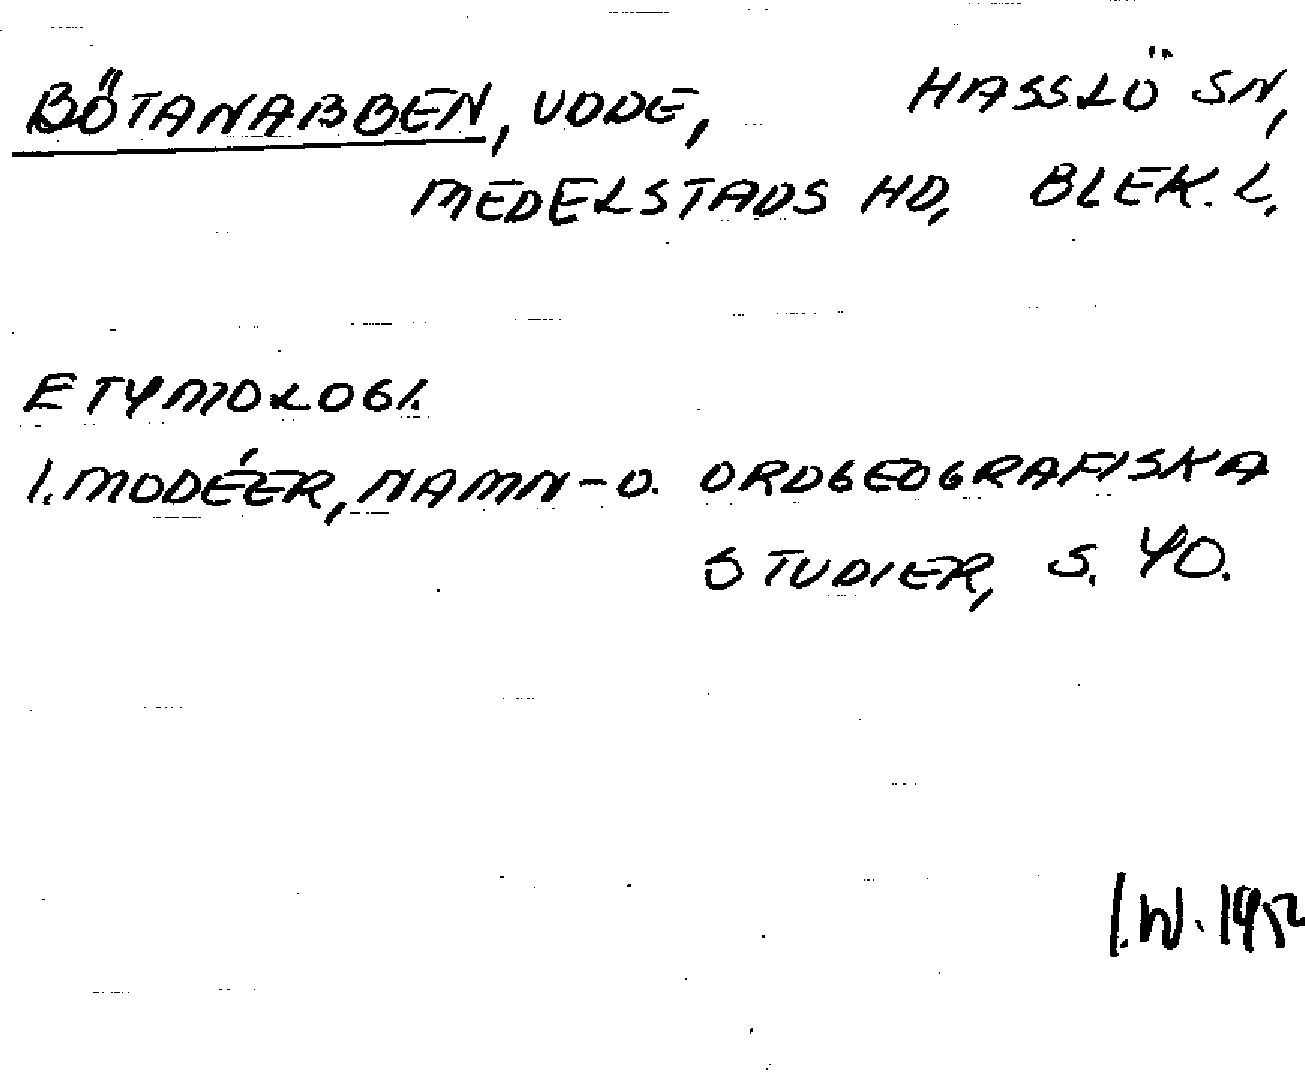 BÖTANABBEN, UDDE, HASSLÖ SN,
MEDELSTADS HD, BLEK. L.
ETYMOLOGI.
I. MODÉER, NAMN- O. ORDGEOGRAFISKA
STUDIER, S. 40.
I.W. 1952